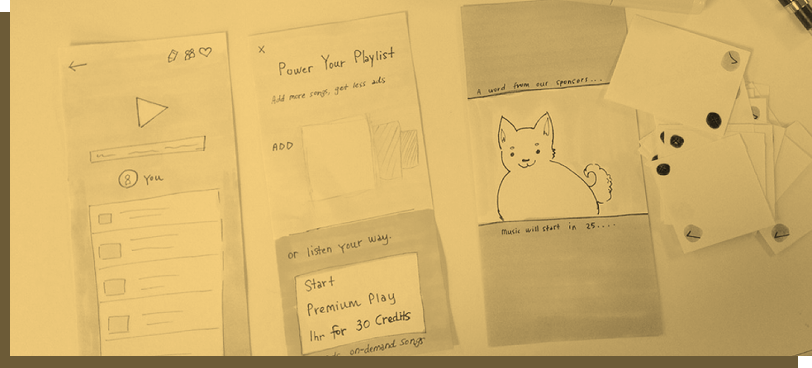 You
Power Your Playlist
Add more songs, get less ads
ADD
or listen your way.
Start
Premium Play
1hr for 30 Credits
on-demand songs
A word from our sponsors...
Music will start in 25....